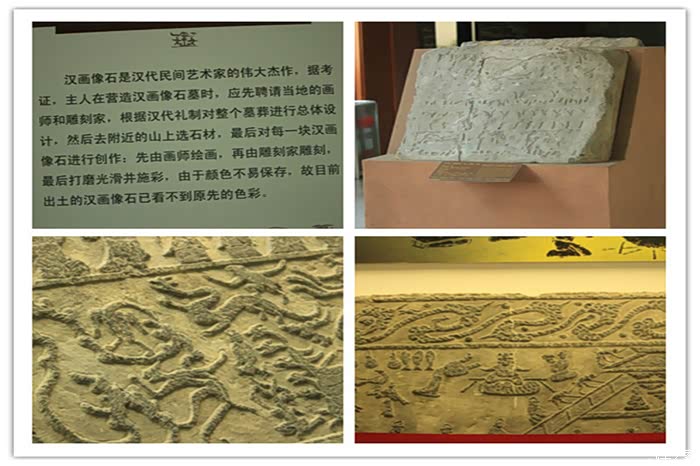 汉画像石是汉代民间艺术家的伟大杰作，据考
证，主人在营造汉画像石墓时，应先聘请当地的画
师和雕刻家，根据汉代礼制对整个墓葬进行总体设
计，然后去附近的山上选石材，最后对每一块汉画
像石进行创作：先由画师绘画，再由雕刻家雕刻，
最后打磨光滑并施彩，由于颜色不易保存，故目前
出土的汉画像石已看不到原先的色彩。